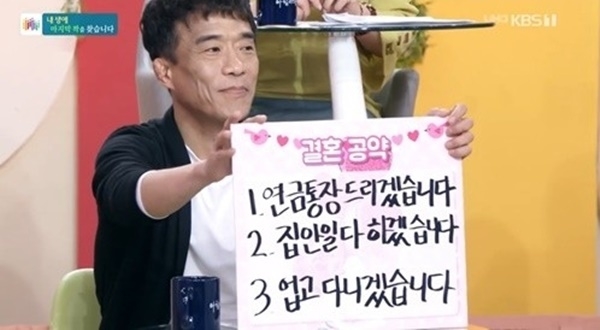 내 생에
마지막 짝을 찾습니다
UHD KBS1
결혼 공약
1. 연금통장 드리겠습니다
2. 집안일 다 하겠습니다
3 업고 다니겠습니다